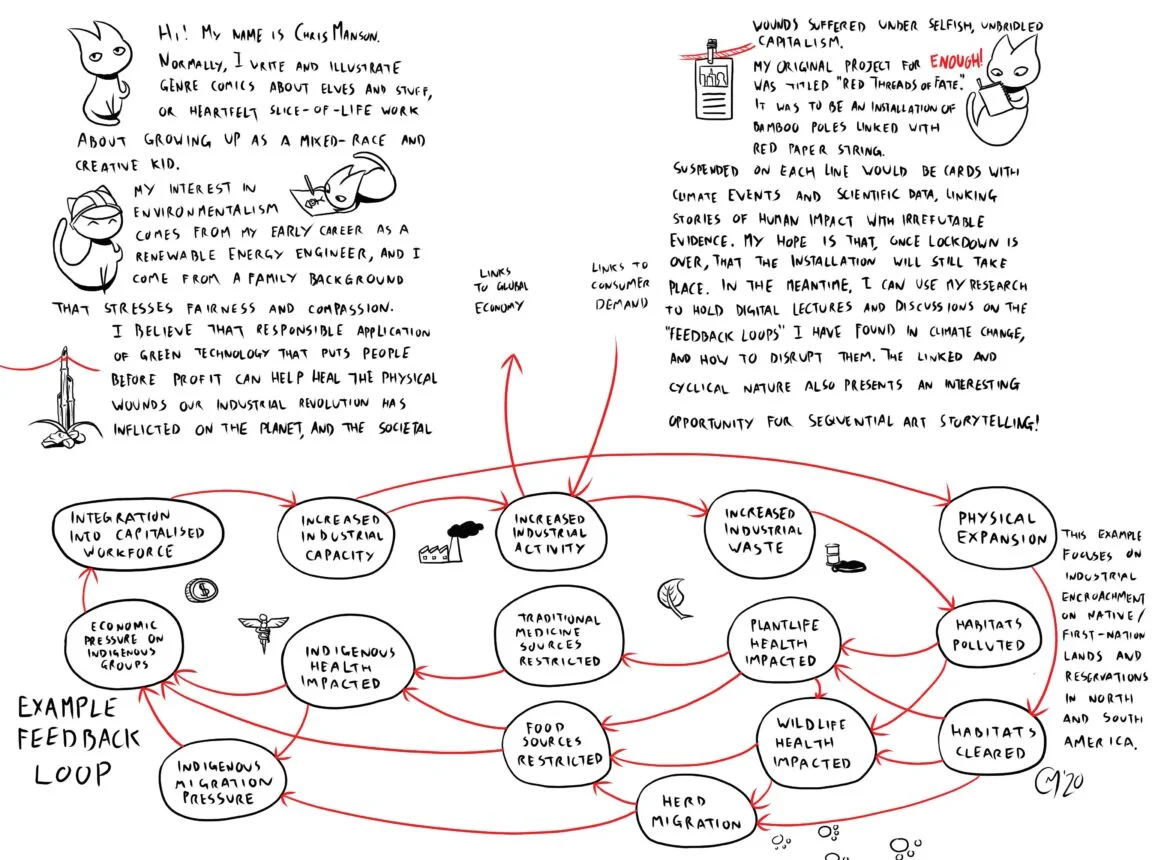 HI! MY NAME IS CHRIS MANSON.
NORMALLY, I WRITE AND ILLUSTRATE
GENRE COMICS ABOUT ELVES AND STUFF,
OR HEARTFELT SLICE-OF-LIFE WORK
ABOUT GROWING UP AS A MIXED-RACE AND
CREATIVE KID.
MY INTEREST IN
ENVIRONMENTALISM
COMES FROM MY EARLY CAREER AS A
RENEWABLE ENERGY ENGINEER, AND I
COME FROM A FAMILY BACKGROUND
THAT STRESSES FAIRNESS AND COMPASSION.
I BELIEVE THAT RESPONSIBLE APPLICATION
OF GREEN TECHNOLOGY THAT PUTS PEOPLE
BEFORE PROFIT CAN HELP HEAL THE PHYSICAL
WOUNDS OUR INDUSTRIAL REVOLUTION HAS
INFLICTED ON THE PLANET, AND THE SOCIETAL
WOUNDS SUFFERED UNDER SELFISH, UNBRIDLED
CAPITALISM.
MY ORIGINAL PROJECT FOR ENOUGH!
WAS TITLED "RED THREADS OF FATE".
IT WAS TO BE AN INSTALLATION OF
BAMBOO POLES LINKED WITH
RED PAPER STRING.
SUSPENDED ON EACH LINE WOULD BE CARDS WITH
CLIMATE EVENTS AND SCIENTIFIC DATA, LINKING
STORIES OF HUMAN IMPACT WITH IRREFUTABLE
EVIDENCE. MY HOPE IS THAT, ONCE LOCKDOWN IS
OVER, THAT THE INSTALLATION WILL STILL TAKE
PLACE. IN THE MEANTIME, I CAN USE MY RESEARCH
TO HOLD DIGITAL LECTURES AND DISCUSSIONS ON THE
"FEEDBACK LOOPS" I HAVE FOUND IN CLIMATE CHANGE,
AND HOW TO DISRUPT THEM. THE LINKED AND
CYCLICAL NATURE ALSO PRESENTS AN INTERESTING
OPPORTUNITY FOR SEQUENTIAL ART STORYTELLING!
LINKS
TO GLOBAL
ECONOMY
LINKS TO
CONSUMER
DEMAND
INTEGRATION
INTO CAPITALISED
WORKFORCE
INCREASED
INDUSTRIAL
CAPACITY
INCREASED
INDUSTRIAL
ACTIVITY
INCREASED
INDUSTRIAL
WASTE
PHYSICAL
EXPANSION
THIS EXAMPLE
FOCUSES ON
INDUSTRIAL
ENCROACHMENT
ON NATIVE/
FIRST-NATION
LANDS AND
RESERVATIONS
IN NORTH
AND SOUTH
AMERICA.
$
ECONOMIC
PRESSURE ON
INDIGENOUS
GROUPS
INDIGENOUS
HEALTH
IMPACTED
TRADITIONAL
MEDICINE
SOURCES
RESTRICTED
PLANTLIFE
HEALTH
IMPACTED
HABITATS
POLLUTED
EXAMPLE
FEEDBACK
LOOP
INDIGENOUS
MIGRATION
PRESSURE
FOOD
SOURCES
RESTRICTED
WILDLIFE
HEALTH
IMPACTED
HABITATS
CLEARED
HERD
MIGRATION
CM'20